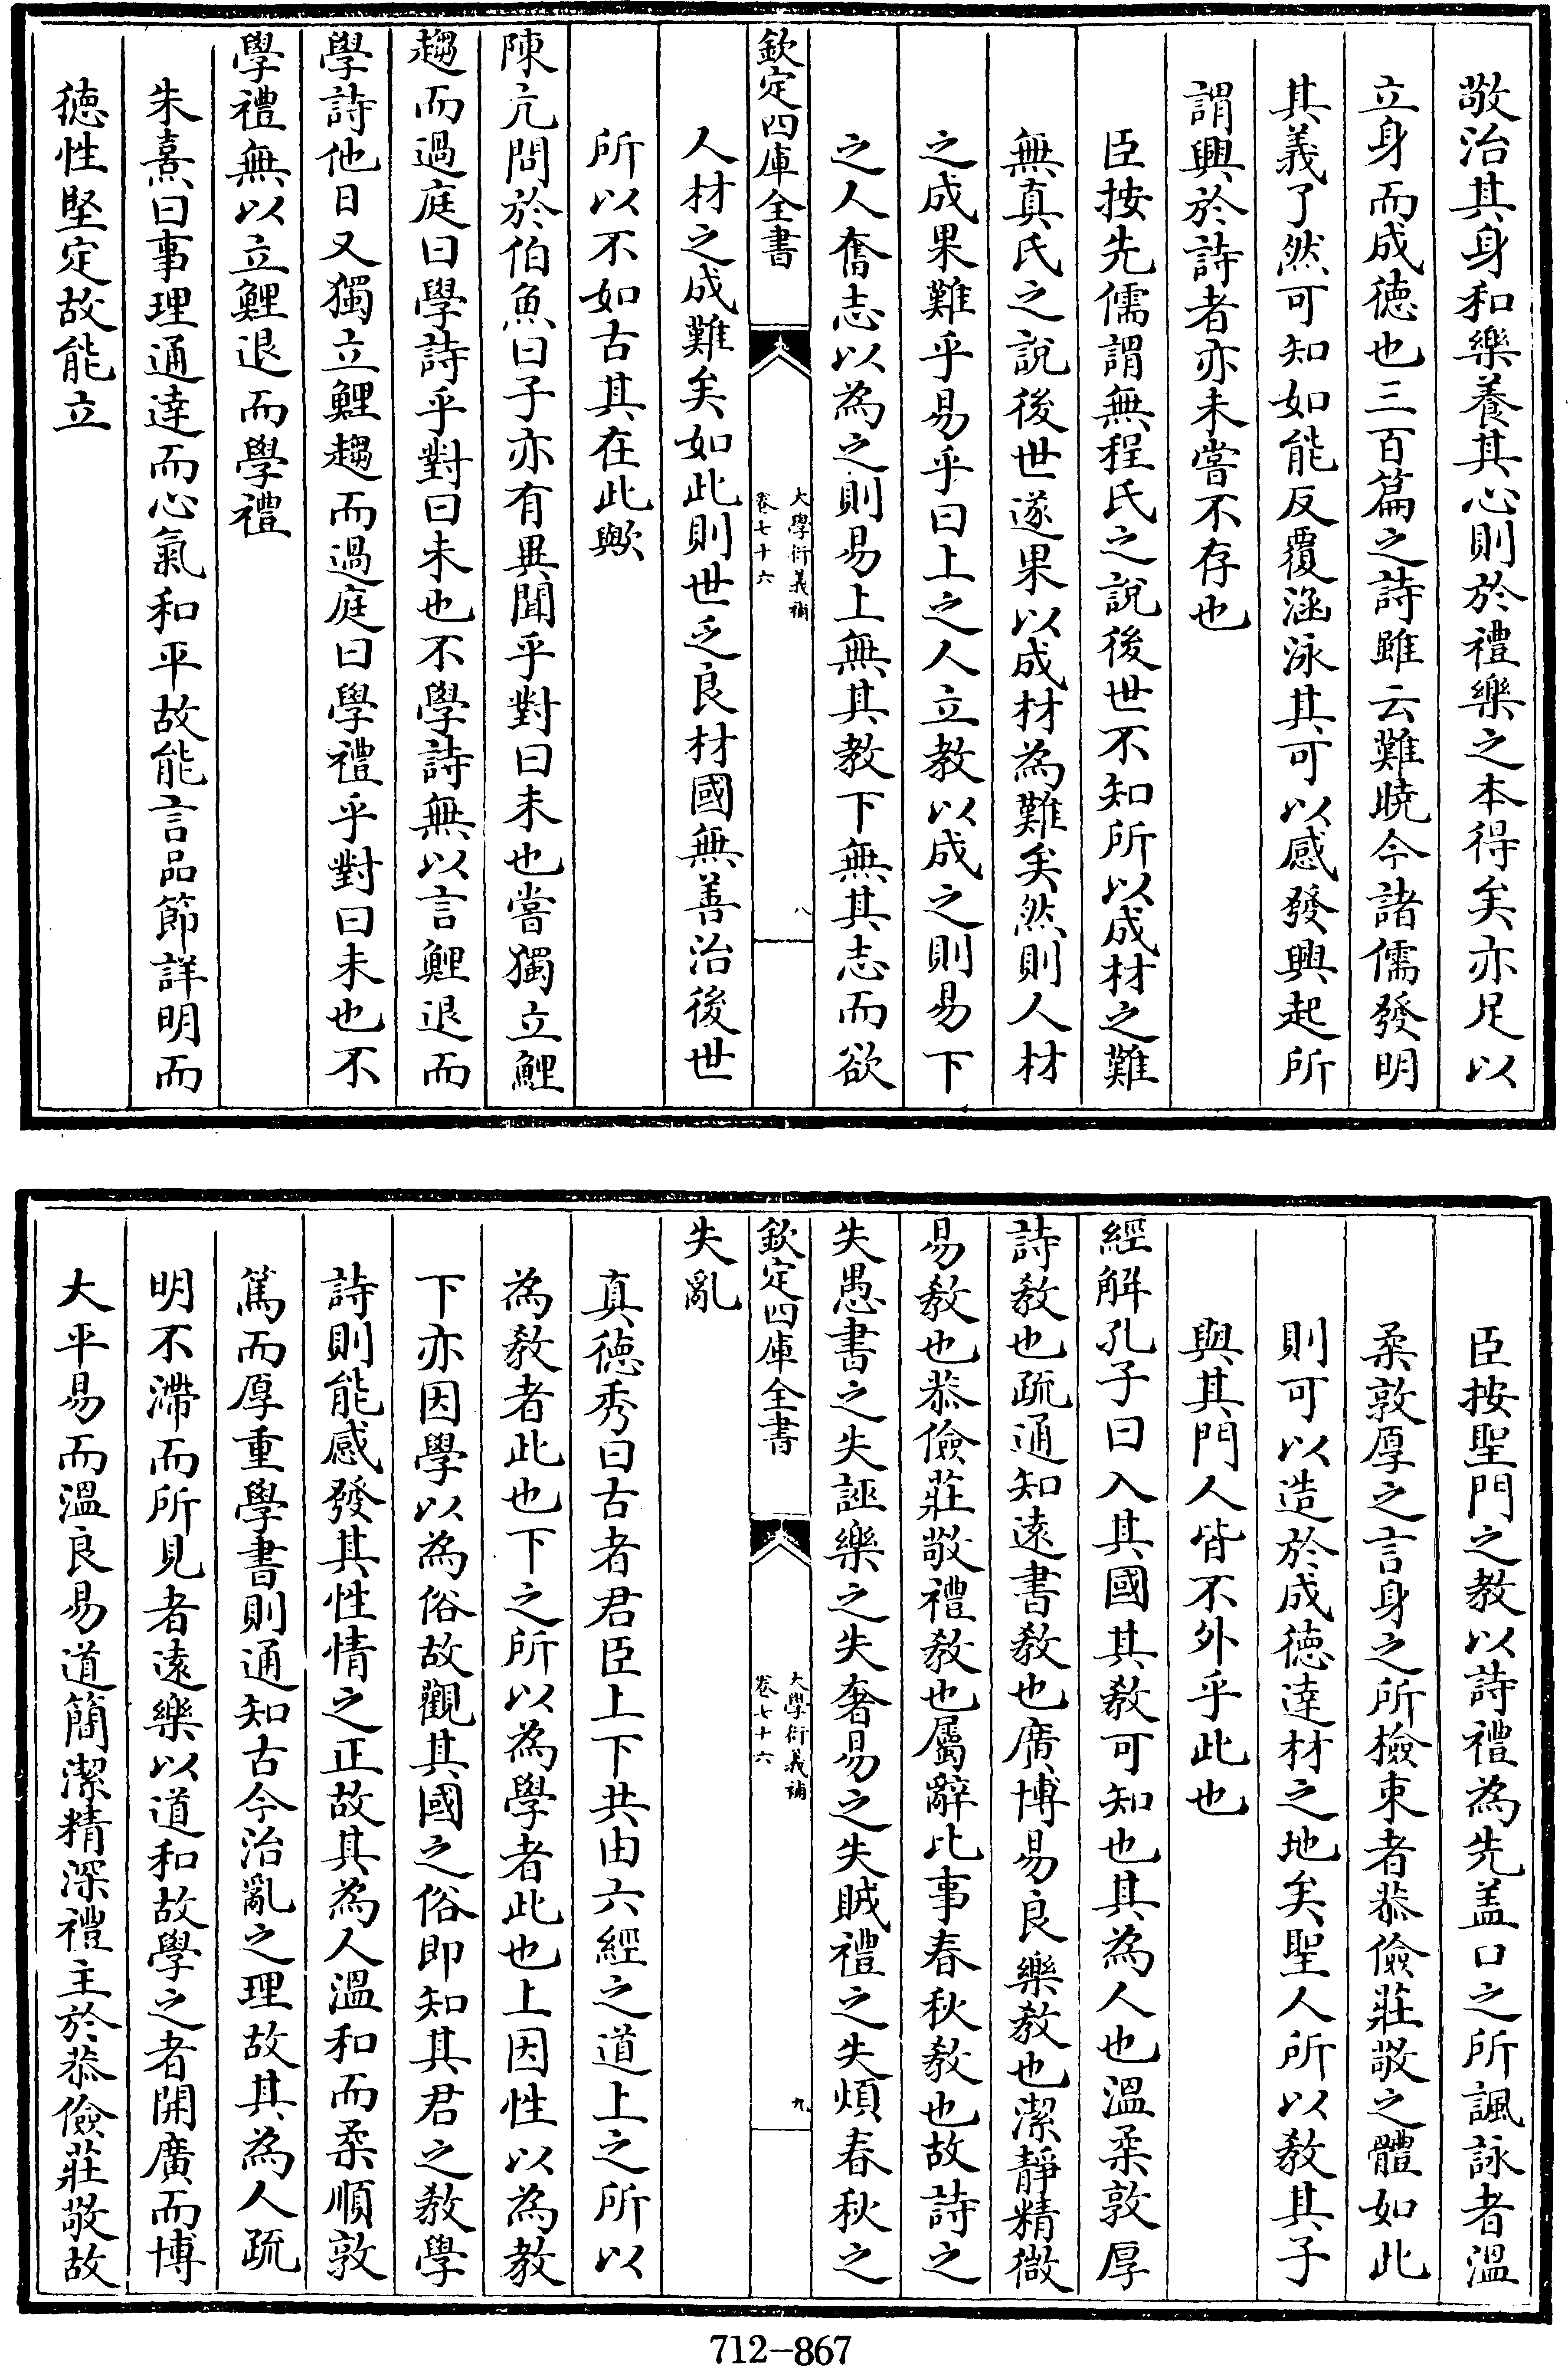 敬治其身和樂養其心則於禮樂之本得矣亦足以
立身而成徳也三百篇之詩雖云難曉今諸儒發明
其義了然可知如能反覆涵泳其可以感發興起所
謂興於詩者亦未嘗不存也
臣按先儒謂無程氏之說後世不知所以成材之難
無真氏之說後世遂果以成材為難矣然則人材
之成果難乎易乎曰上之人立教以成之則易下
之人奮志以為之則易上無其教下無其志而欲
欽定四庫全書
大學衍義補
卷七十六
八
人材之成難矣如此則世乏良材國無善治後世
所以不如古其在此歟
陳亢問於伯魚曰子亦有異聞乎對曰未也嘗獨立鯉
趨而過庭曰學詩乎對曰未也不學詩無以言鯉退而
學詩他日又獨立鯉趨而過庭曰學禮乎對曰未也不
學禮無以立鯉退而學禮
朱熹曰事理通達而心氣和平故能言品節詳明而
徳性堅定故能立
臣按聖門之教以詩禮為先盖口之所諷詠者溫
柔敦厚之言身之所檢束者恭儉莊敬之體如此
則可以造於成徳達材之地矣聖人所以教其子
與其門人皆不外乎此也
經解孔子曰入其國其教可知也其為人也溫柔敦厚
詩教也疏通知遠書教也廣博易良樂教也潔靜精微
易教也恭儉莊敬禮教也屬辭比事春秋教也故詩之
失愚書之失誣樂之失奢易之失賊禮之失煩春秋之
欽定四庫全書
大學衍義補
卷七十六
九
失亂
真徳秀曰古者君臣上下共由六經之道上之所以
為教者此也下之所以為學者此也上因性以為教
下亦因學以為俗故觀其國之俗即知其君之教學
詩則能感發其性情之正故其為人溫和而柔順敦
篤而厚重學書則通知古今治亂之理故其為人疏
明不滯而所見者遠樂以道和故學之者開廣而博
大平易而溫良易道簡潔精深禮主於恭儉莊敬故
712-867